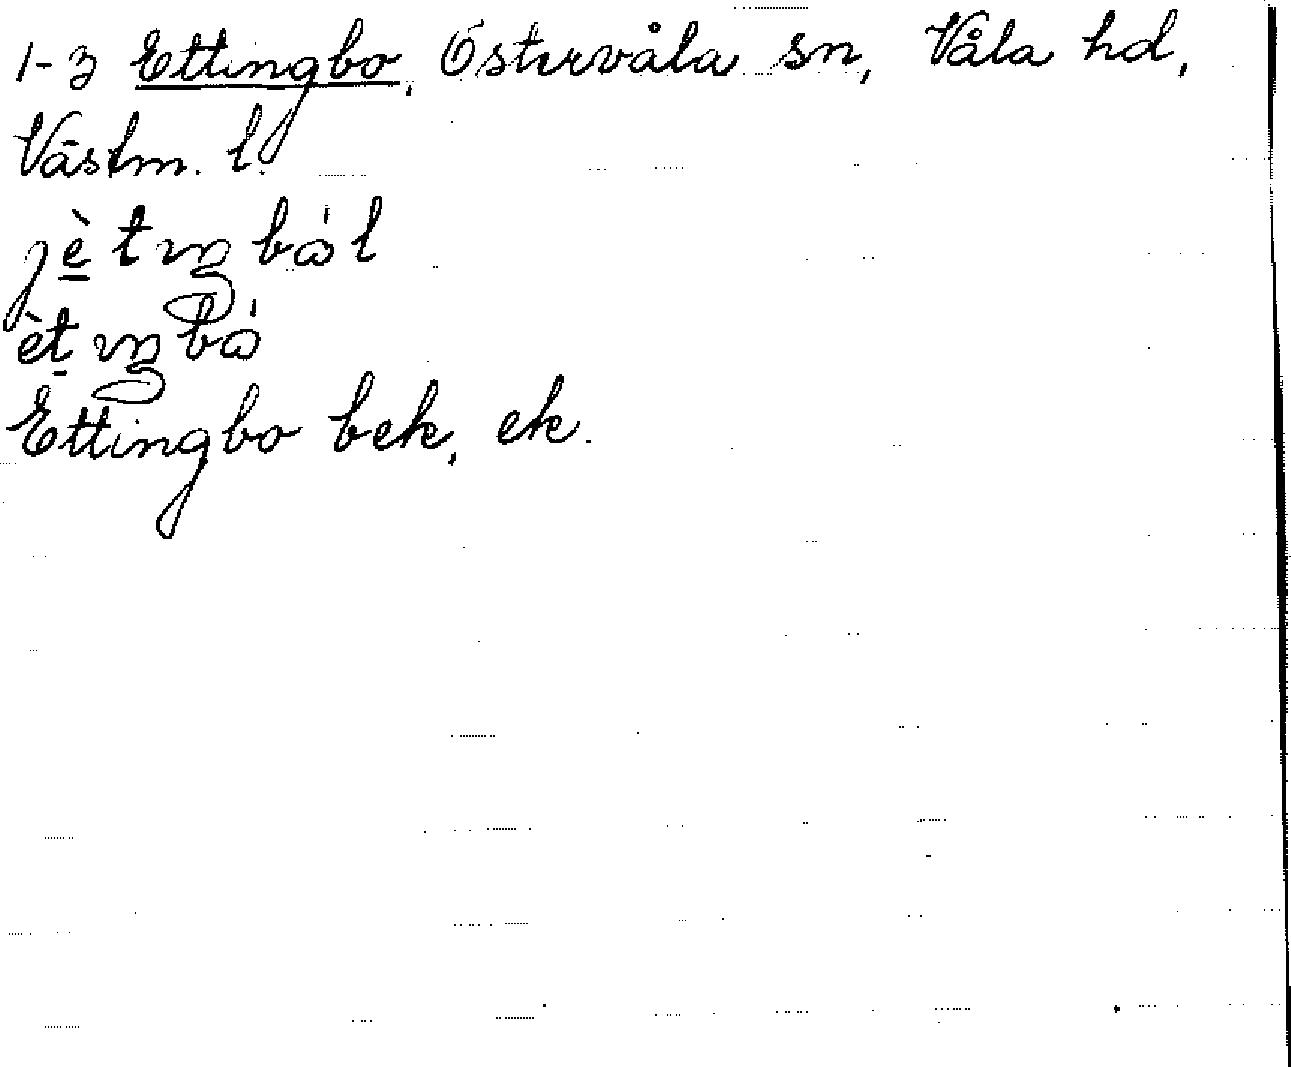 1-3 Ettingbo, Östervåla sn, Våla hd,
Västm. l.
Ettingbo bek, ek.